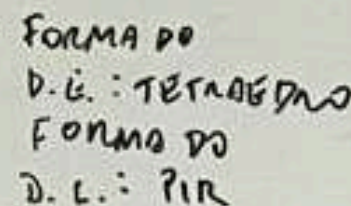 FORMA DO
D.E.: TETRAEDRO
FORMA DO
D.E.: PIR